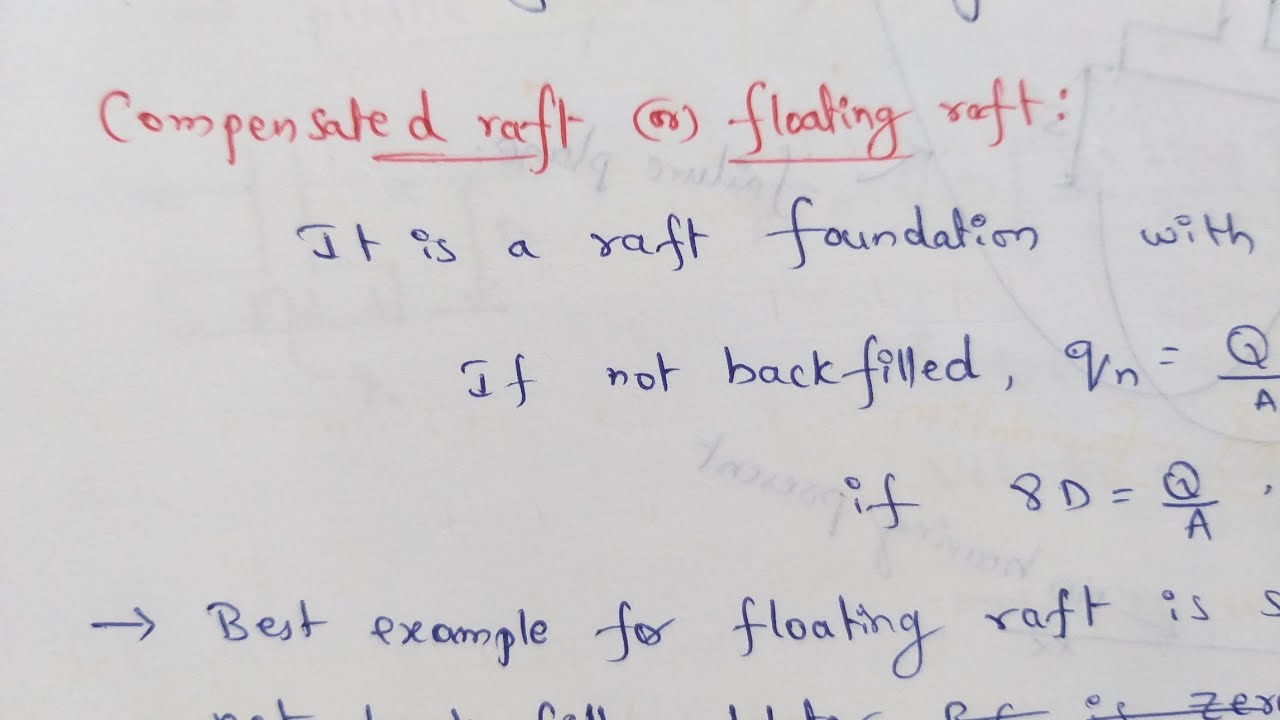 Compensated raft (or) floating raft:
It is a raft foundation with
If not backfilled, qn = Q/A
if γD = Q/A
→ Best example for floating raft is
is zer